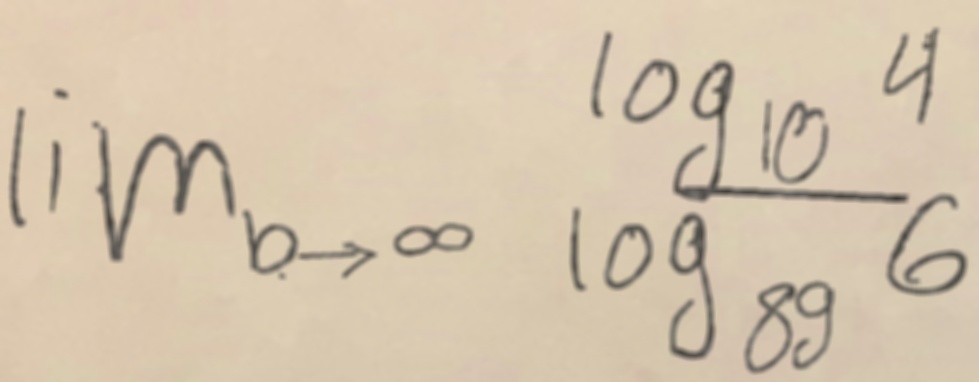 lim b→∞ log 10 4
log 89 6